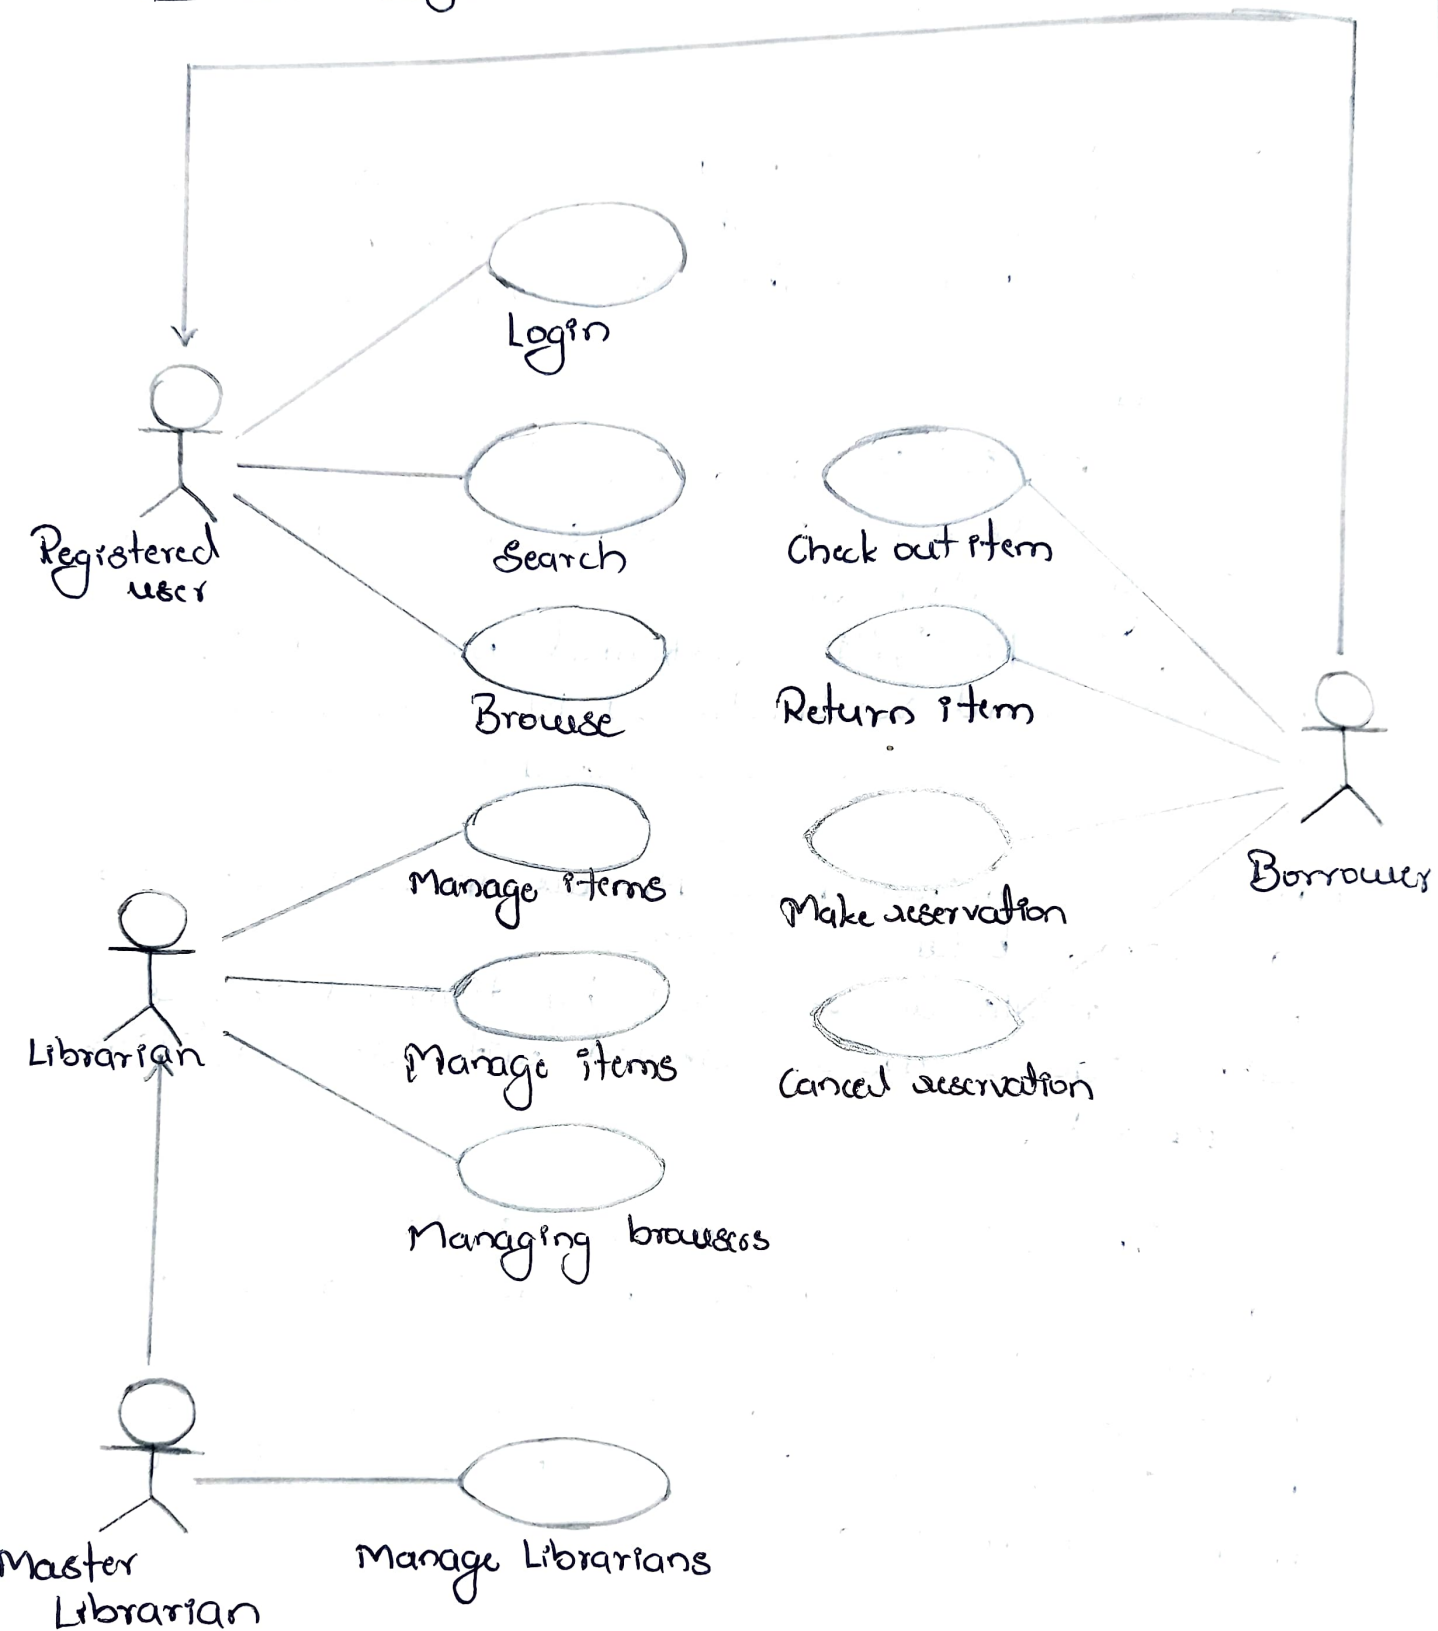 Login
Registered
user
Search
Check out item
Browse
Return item
Manage items
Make reservation
Borrower
Librarian
Manage items
Cancel reservation
Managing browsers
Manage Librarians
Master
Librarian